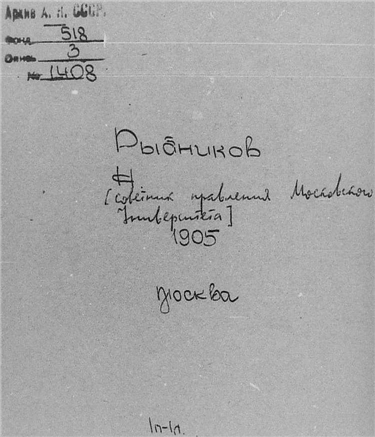 Архив А. Н. СССР.
Фонд 518
Опись 3
№ 1408
Рыбников
Н
[советник правления Московского
Университета]
1905
Москва
1л-1л.